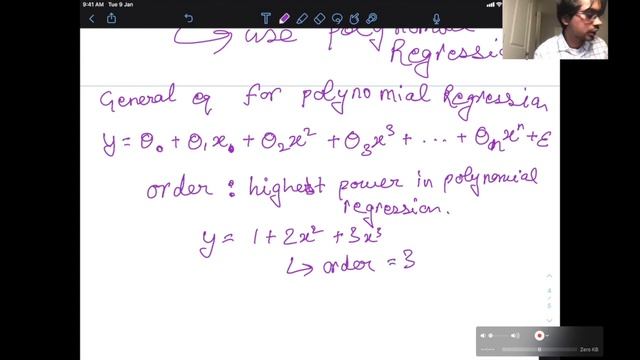 9:41 AM Tue 9 Jan
↳ use polynomial
Regressi
General eq for polynomial Regression
y = θ₀ + θ₁x₀ + θ₂x² + θ₃x³ + ... + θₙxⁿ + ε
order : highest power in polynomial
regression.
y = 1 + 2x² + 3x³
↳ order = 3
4 / 5
Zero KB